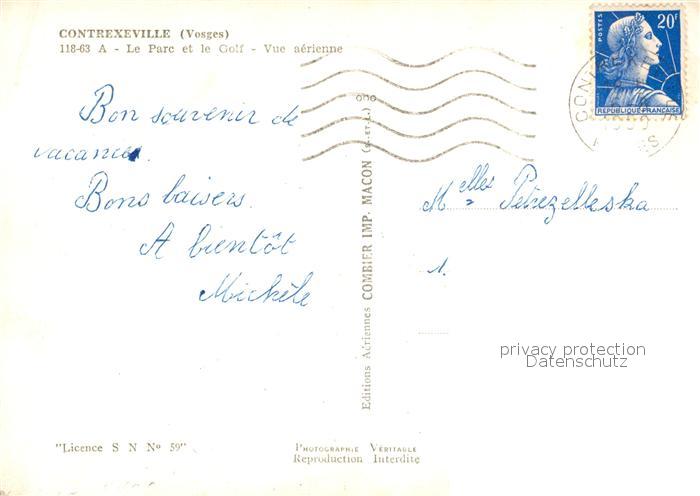 CONTREXEVILLE (Vosges)
118-63 A - Le Parc et le Golf - Vue aérienne
Bon souvenir de
vacances.
Bons baisers.
A bientôt
Michèle
"Licence S N Nº 59"
PHOTOGRAPHIE VÉRITABLE
Reproduction Interdite
Editions Aériennes COMBIER IMP. MACON (S.-ET-L.)
POSTES
20F
REPUBLIQUE FRANÇAISE
Melles Petrezelleska
1.
privacy protection
Datenschutz